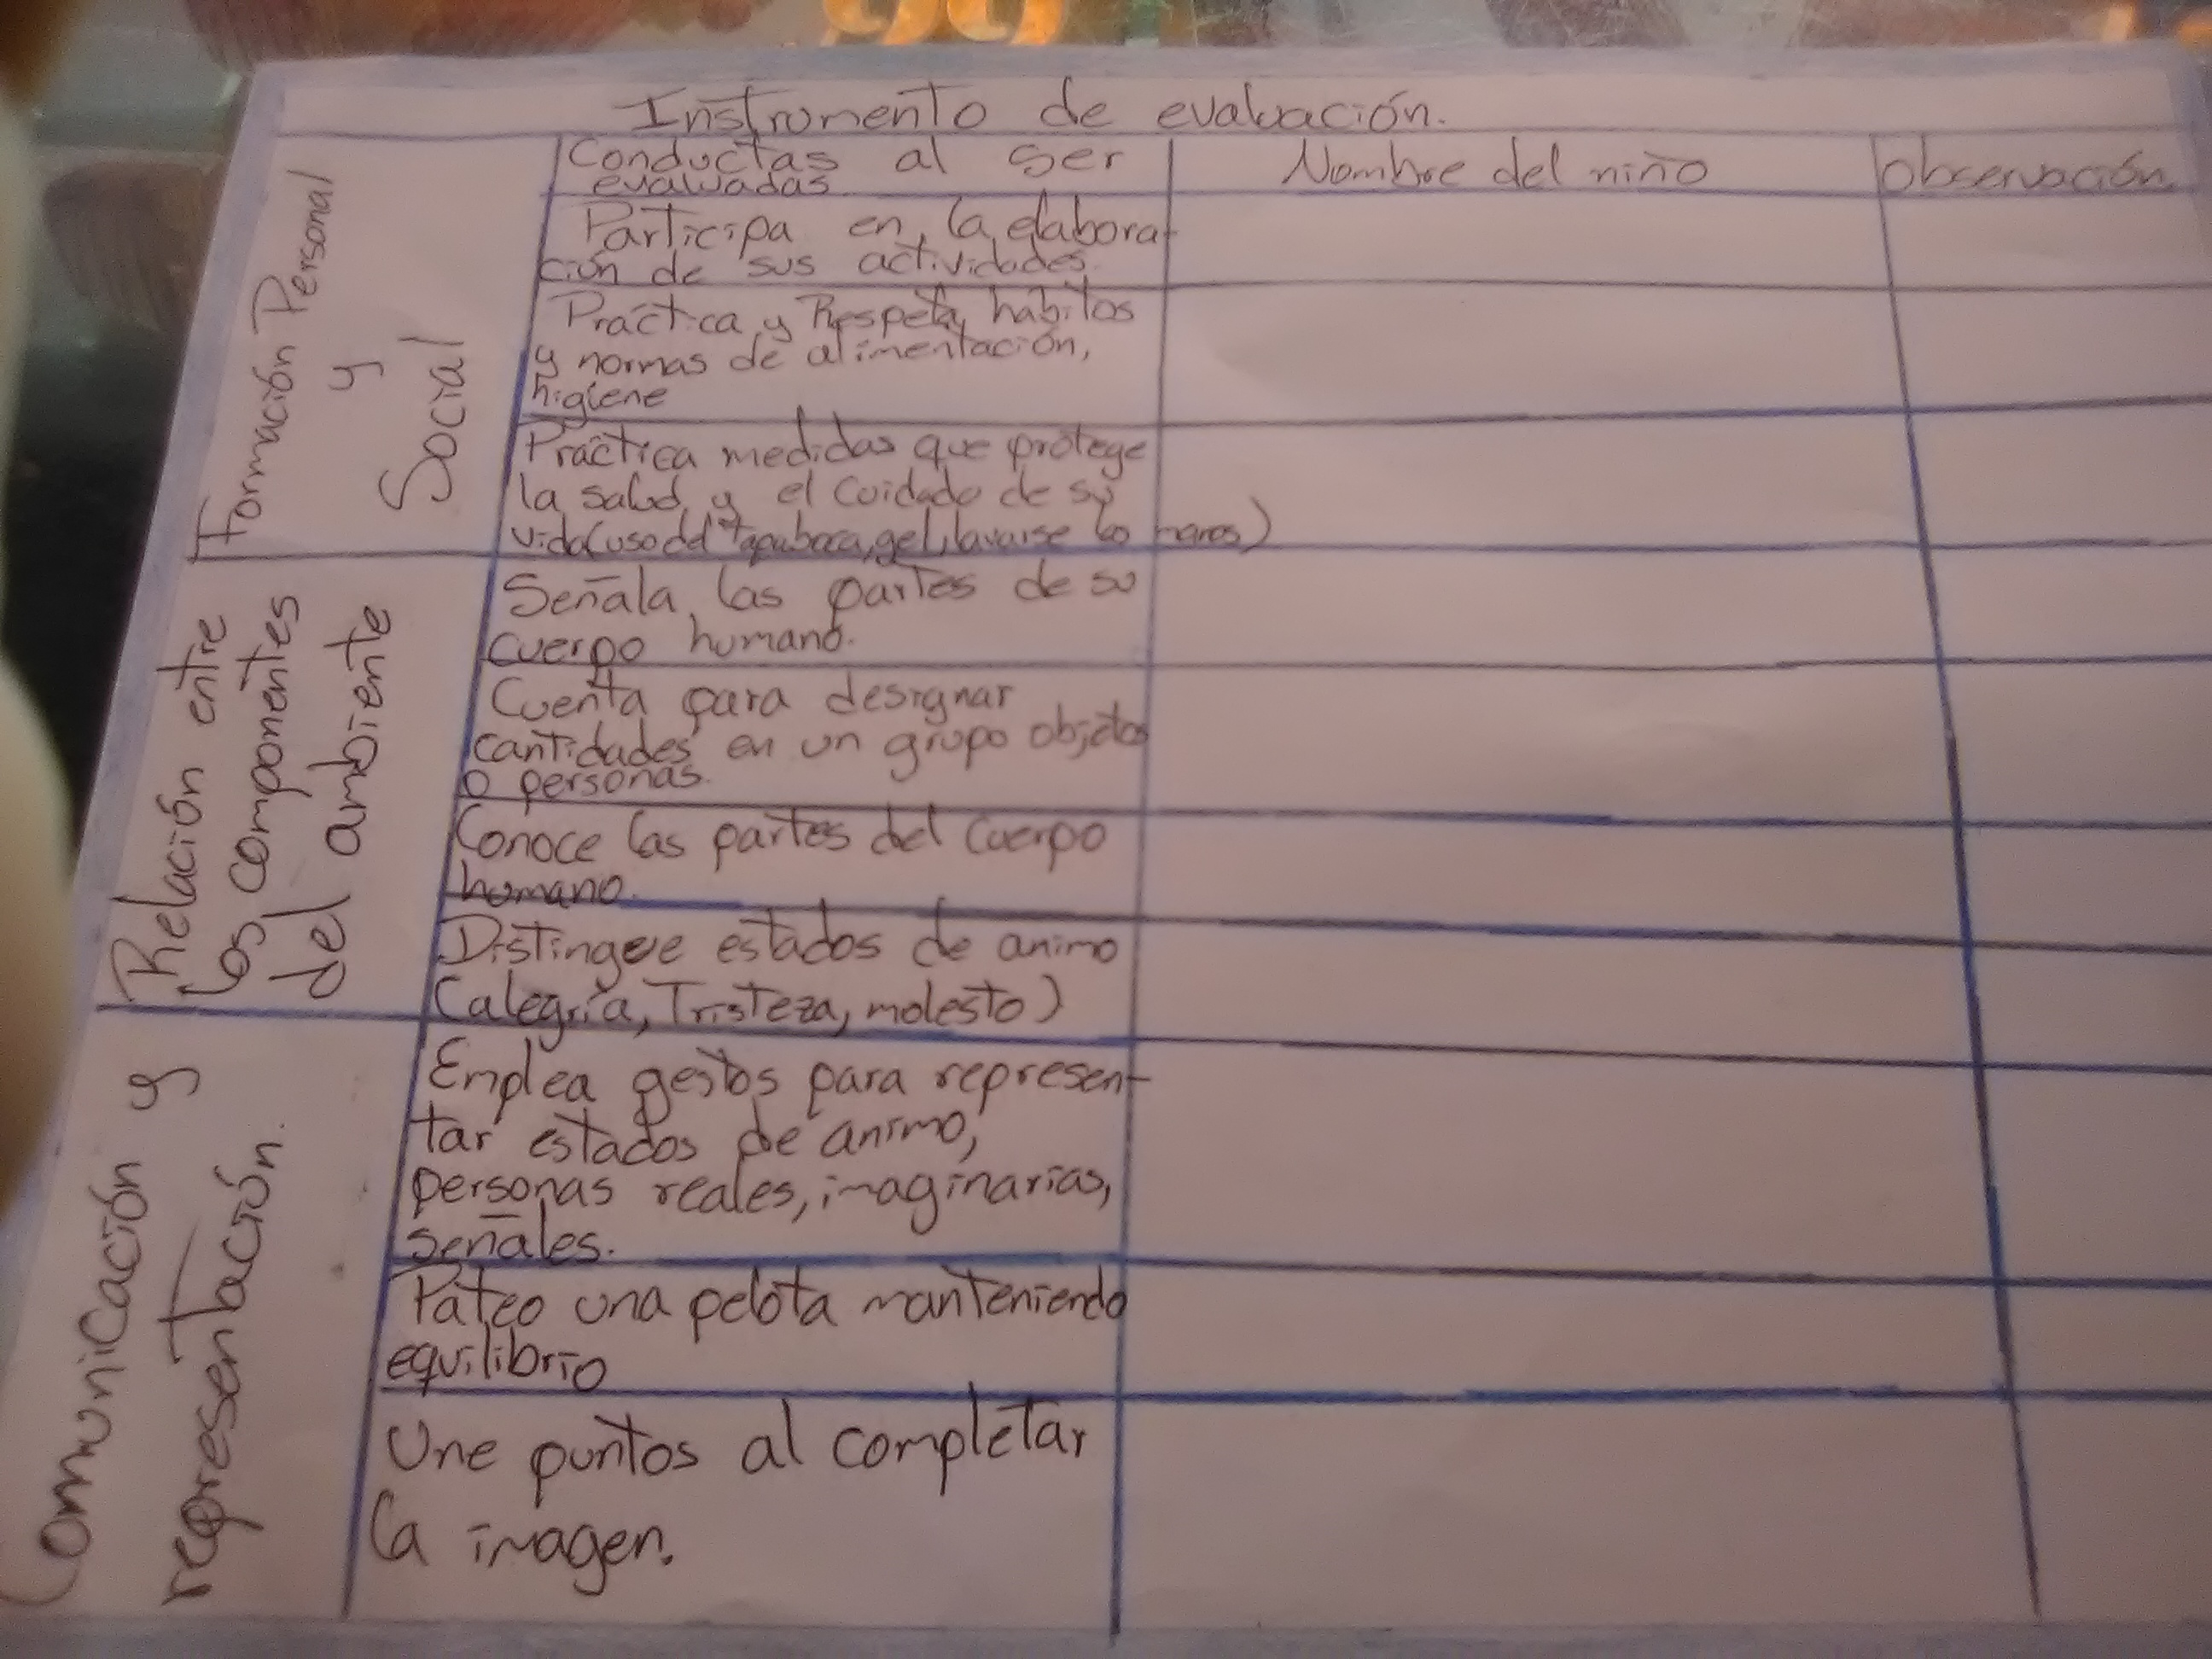 Instrumento de evaluación.
Conductas al ser
evaluadas
Nombre del niño
Observación
Formación Personal
y
Social
Participa en la elabora-
ción de sus actividades.
Práctica y Respeta hábitos
y normas de alimentación,
higiene
Práctica medidas que protege
la salud y el cuidado de su
vida (uso del tapaboca, gel, lavarse las manos)
Relación entre
los componentes
del ambiente
Señala las partes de su
cuerpo humano.
Cuenta para designar
cantidades en un grupo objetos
o personas.
Conoce las partes del cuerpo
humano.
Distingue estados de animo
(alegría, Tristeza, molesto)
Comunicación y
representación.
Emplea gestos para represen-
tar estados de animo,
personas reales, imaginarias,
señales.
Pateo una pelota manteniendo
equilibrio
Une puntos al completar
la imagen.